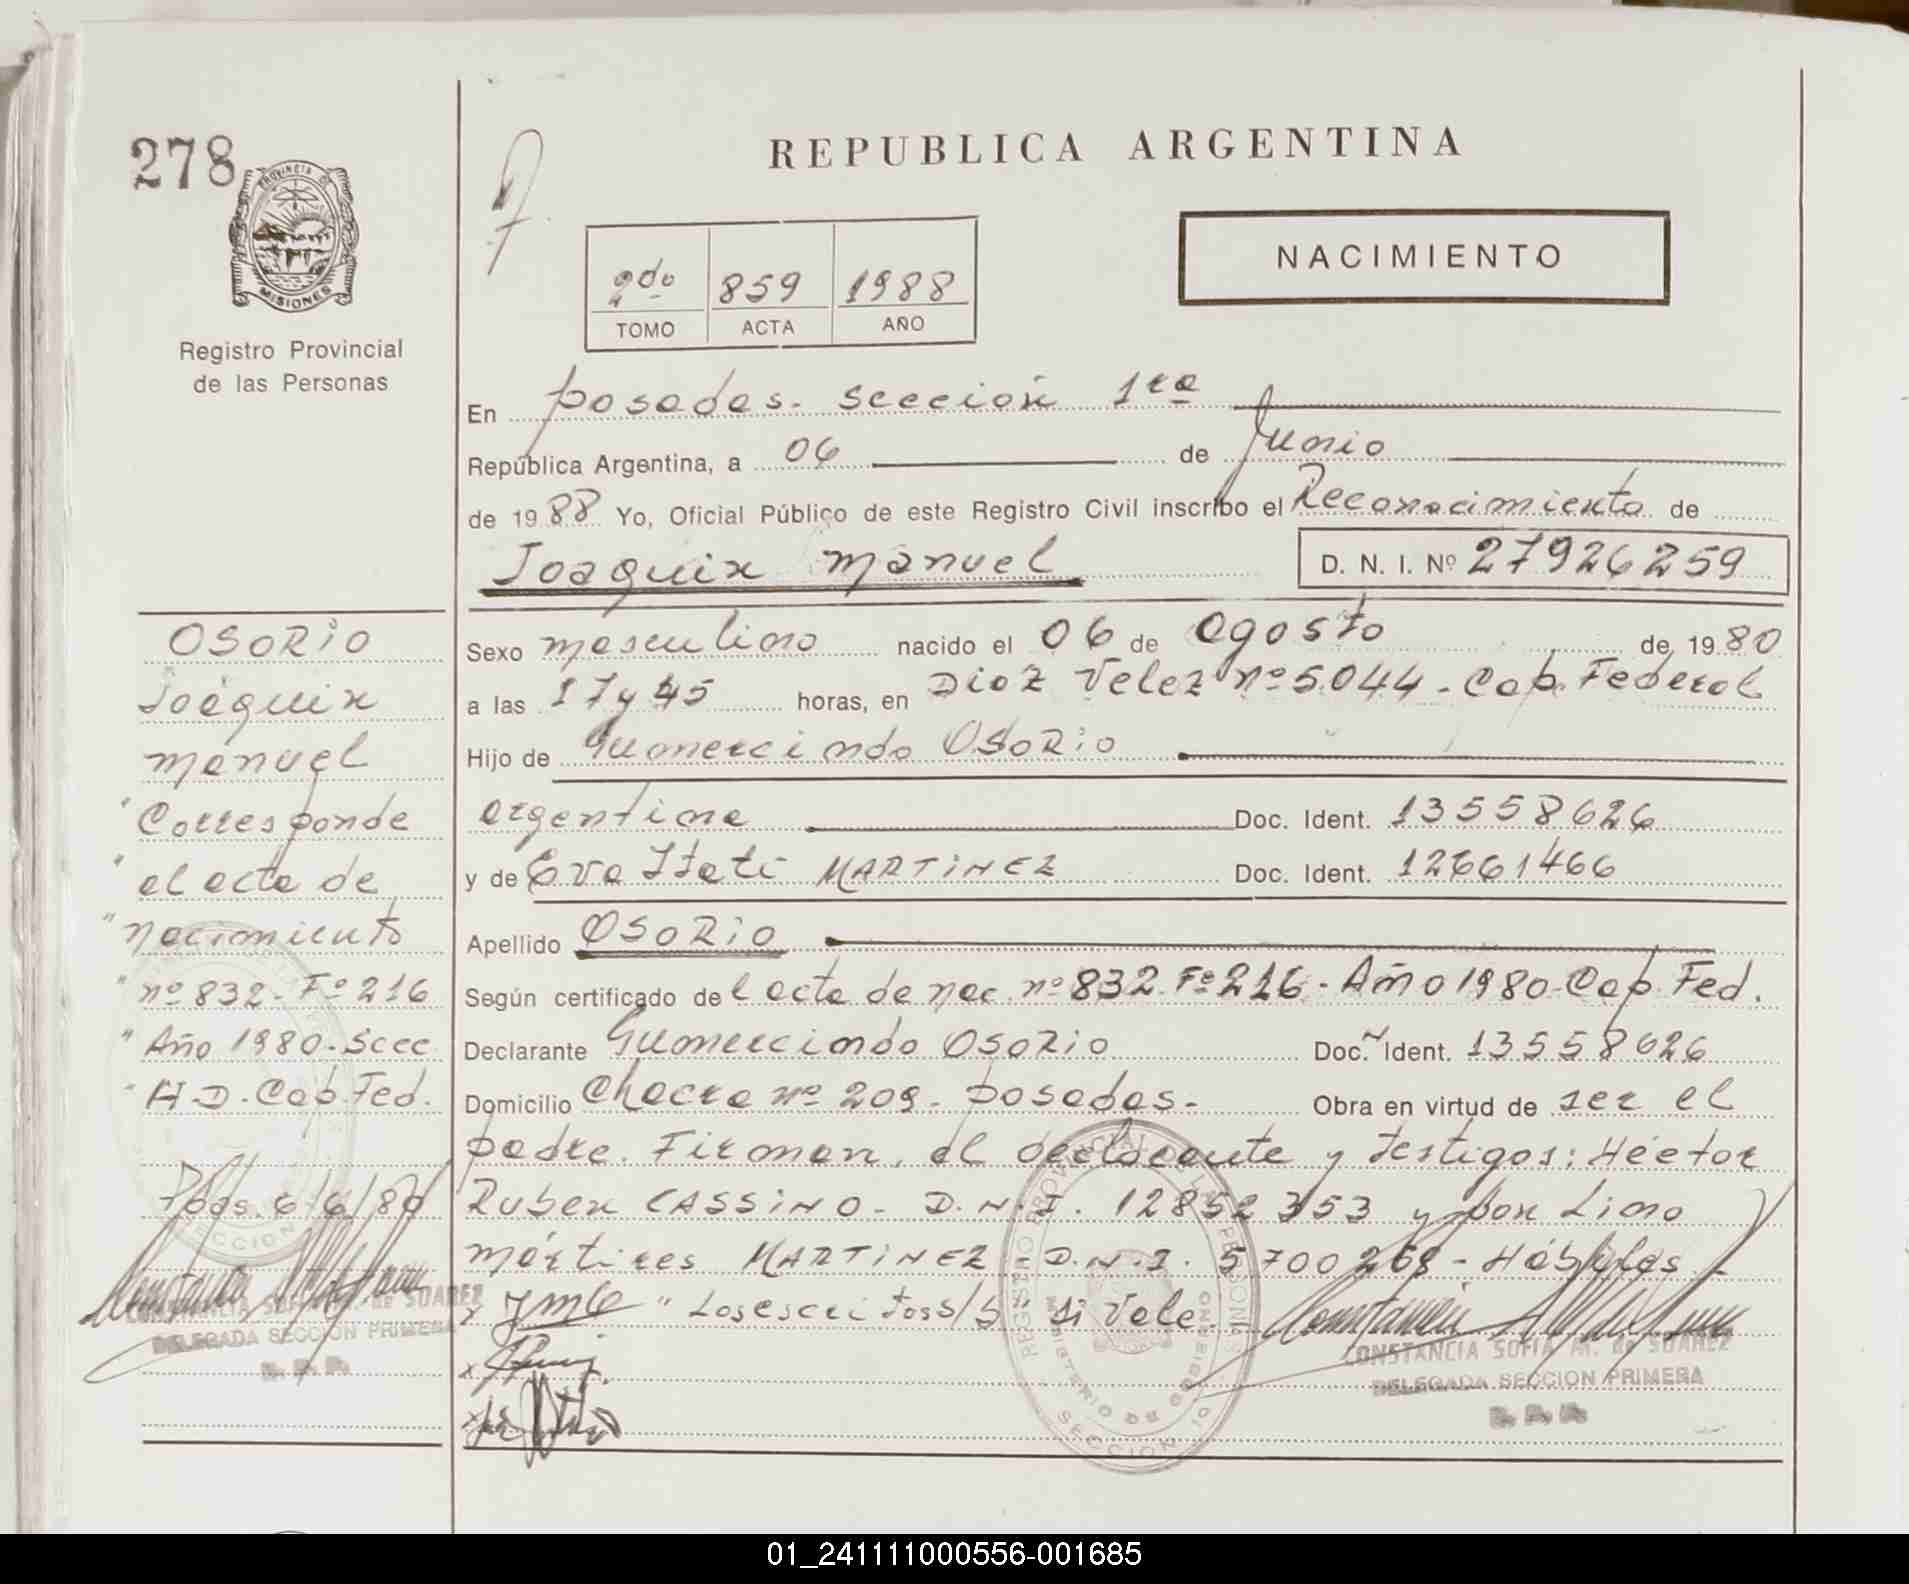 278
PROVINCIA DE
MISIONES
Registro Provincial
de las Personas
REPUBLICA ARGENTINA
NACIMIENTO
2do 859 1988
TOMO ACTA AÑO
En Posadas. Sección 1ra
República Argentina, a 06 de Junio
de 1988 Yo, Oficial Público de este Registro Civil inscribo el Reconocimiento de
Joaquin Manuel D. N. I. Nº 27926259
Sexo masculino nacido el 06 de Agosto de 1980
a las 17 y 45 horas, en Diaz Velez nº 5.044 - Cap. Federal
Hijo de Gumercindo OSORIO
argentina Doc. Ident. 13558626
y de Eva Itati MARTINEZ Doc. Ident. 12661466
Apellido OSORIO
Según certificado del acta de nac. nº 832 Fº 216 - Año 1980 - Cap. Fed.
Declarante Gumercindo OSORIO Doc. Ident. 13558626
Domicilio Chacra nº 209 - Posadas - Obra en virtud de ser el
padre. Firman, el declarante y testigos: Héctor
Ruben CASSINO - D.N.I. 12852353 y don Lino
Mártires MARTINEZ D.N.I. 5700268 - Hábiles.
"Los escritos s/s" si Vale.
CONSTANCIA SOFIA M. de SUAREZ
DELEGADA SECCION PRIMERA
R. P. P.
OSORIO
Joaquin
Manuel
"Corresponde
"al acta de
"nacimiento
"nº 832 - Fº 216
"Año 1980 - Secc
"HD. Cap. Fed.
Pdas. 6/6/88
CONSTANCIA SOFIA M. de SUAREZ
DELEGADA SECCION PRIMERA
R. P. P.
01_241111000556-001685